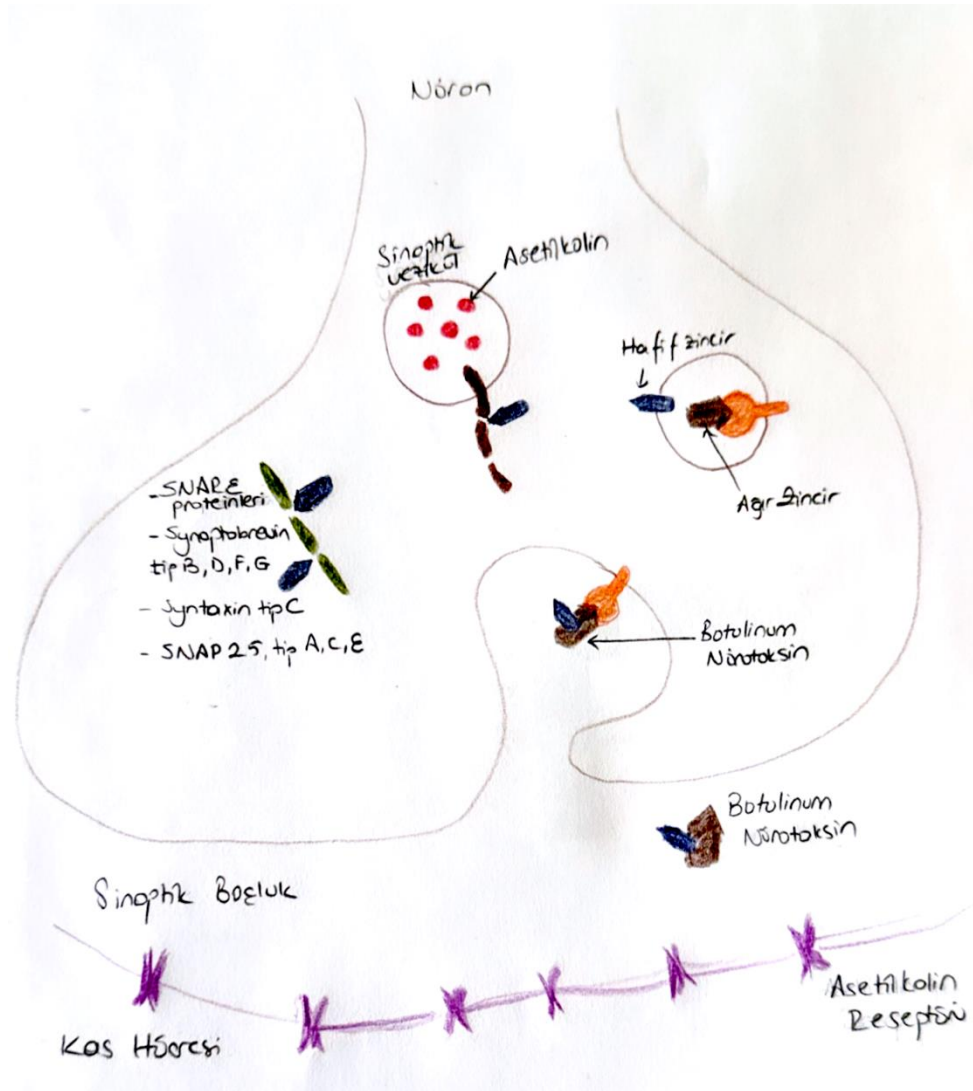 Nöron
Sinaptik
vezikül
Asetilkolin
Hafif zincir
Ağır Zincir
-SNARE
proteinleri
- Synaptobrevin
tip B, D, F, G
- Syntaxin tip C
- SNAP 25, tip A, C, E
Botulinum
Nörotoksin
Botulinum
Nörotoksin
Sinaptik Boşluk
Asetilkolin
Reseptörü
Kas Hücresi